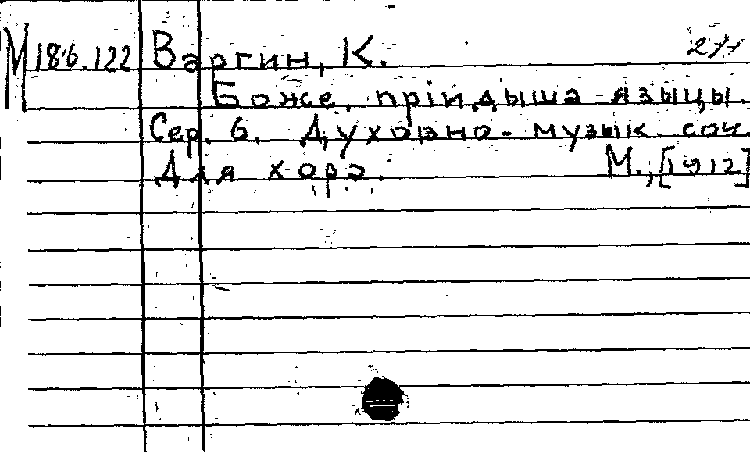 М 186.122 Варгин, К.
Боже, прiидыша языцы.
Сер. 6. Духовно-музык. соч.
Для хора. М., [1912]